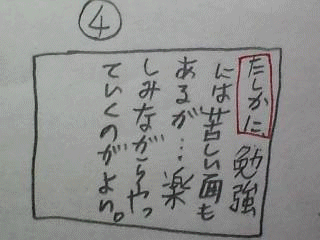 ④
たしかに、勉強
には苦しい面も
あるが…楽
しみながらやっ
ていくのがよい。